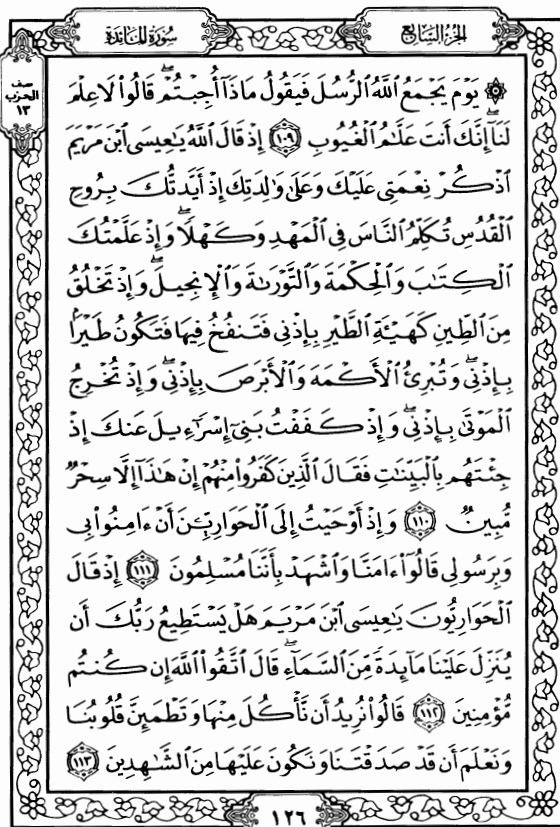 سُورَةُ المَائدَة
الجُزْءُ السَّابِعُ
نصف
الحزب
١٣
۞ يَوْمَ يَجْمَعُ اللَّهُ الرُّسُلَ فَيَقُولُ مَاذَآ أُجِبْتُمْ ۖ قَالُوا۟ لَا عِلْمَ
لَنَآ ۖ إِنَّكَ أَنتَ عَلَّـٰمُ الْغُيُوبِ ۝١٠٩ إِذْ قَالَ اللَّهُ يَـٰعِيسَى ابْنَ مَرْيَمَ
اذْكُرْ نِعْمَتِى عَلَيْكَ وَعَلَىٰ وَٰلِدَتِكَ إِذْ أَيَّدتُّكَ بِرُوحِ
الْقُدُسِ تُكَلِّمُ النَّاسَ فِى الْمَهْدِ وَكَهْلًا ۖ وَإِذْ عَلَّمْتُكَ
الْكِتَـٰبَ وَالْحِكْمَةَ وَالتَّوْرَىٰةَ وَالْإِنجِيلَ ۖ وَإِذْ تَخْلُقُ
مِنَ الطِّينِ كَهَيْـَٔةِ الطَّيْرِ بِإِذْنِى فَتَنفُخُ فِيهَا فَتَكُونُ طَيْرًۢا
بِإِذْنِى ۖ وَتُبْرِئُ الْأَكْمَهَ وَالْأَبْرَصَ بِإِذْنِى ۖ وَإِذْ تُخْرِجُ
الْمَوْتَىٰ بِإِذْنِى ۖ وَإِذْ كَفَفْتُ بَنِىٓ إِسْرَٰٓءِيلَ عَنكَ إِذْ
جِئْتَهُم بِالْبَيِّنَـٰتِ فَقَالَ الَّذِينَ كَفَرُوا۟ مِنْهُمْ إِنْ هَـٰذَآ إِلَّا سِحْرٌ
مُّبِينٌ ۝١١٠ وَإِذْ أَوْحَيْتُ إِلَى الْحَوَارِيِّـۧنَ أَنْ ءَامِنُوا۟ بِى
وَبِرَسُولِى قَالُوٓا۟ ءَامَنَّا وَاشْهَدْ بِأَنَّنَا مُسْلِمُونَ ۝١١١ إِذْ قَالَ
الْحَوَارِيُّونَ يَـٰعِيسَى ابْنَ مَرْيَمَ هَلْ يَسْتَطِيعُ رَبُّكَ أَن
يُنَزِّلَ عَلَيْنَا مَآئِدَةً مِّنَ السَّمَآءِ ۖ قَالَ اتَّقُوا۟ اللَّهَ إِن كُنتُم
مُّؤْمِنِينَ ۝١١٢ قَالُوا۟ نُرِيدُ أَن نَّأْكُلَ مِنْهَا وَتَطْمَئِنَّ قُلُوبُنَا
وَنَعْلَمَ أَن قَدْ صَدَقْتَنَا وَنَكُونَ عَلَيْهَا مِنَ الشَّـٰهِدِينَ ۝١١٣
١٢٦